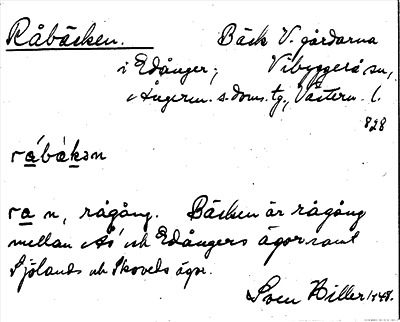 Råbäcken. Bäck V. gårdarna
i Edånger, Vibyggerå sn,
Ångerm. s. doms.tg., Västern. l.
828
rábákən
ra n, rågång. Bäcken är rågång
mellan Ås och Edångers ägor samt
Sjölands och Skovels ägor.
Sven Hiller 1948.